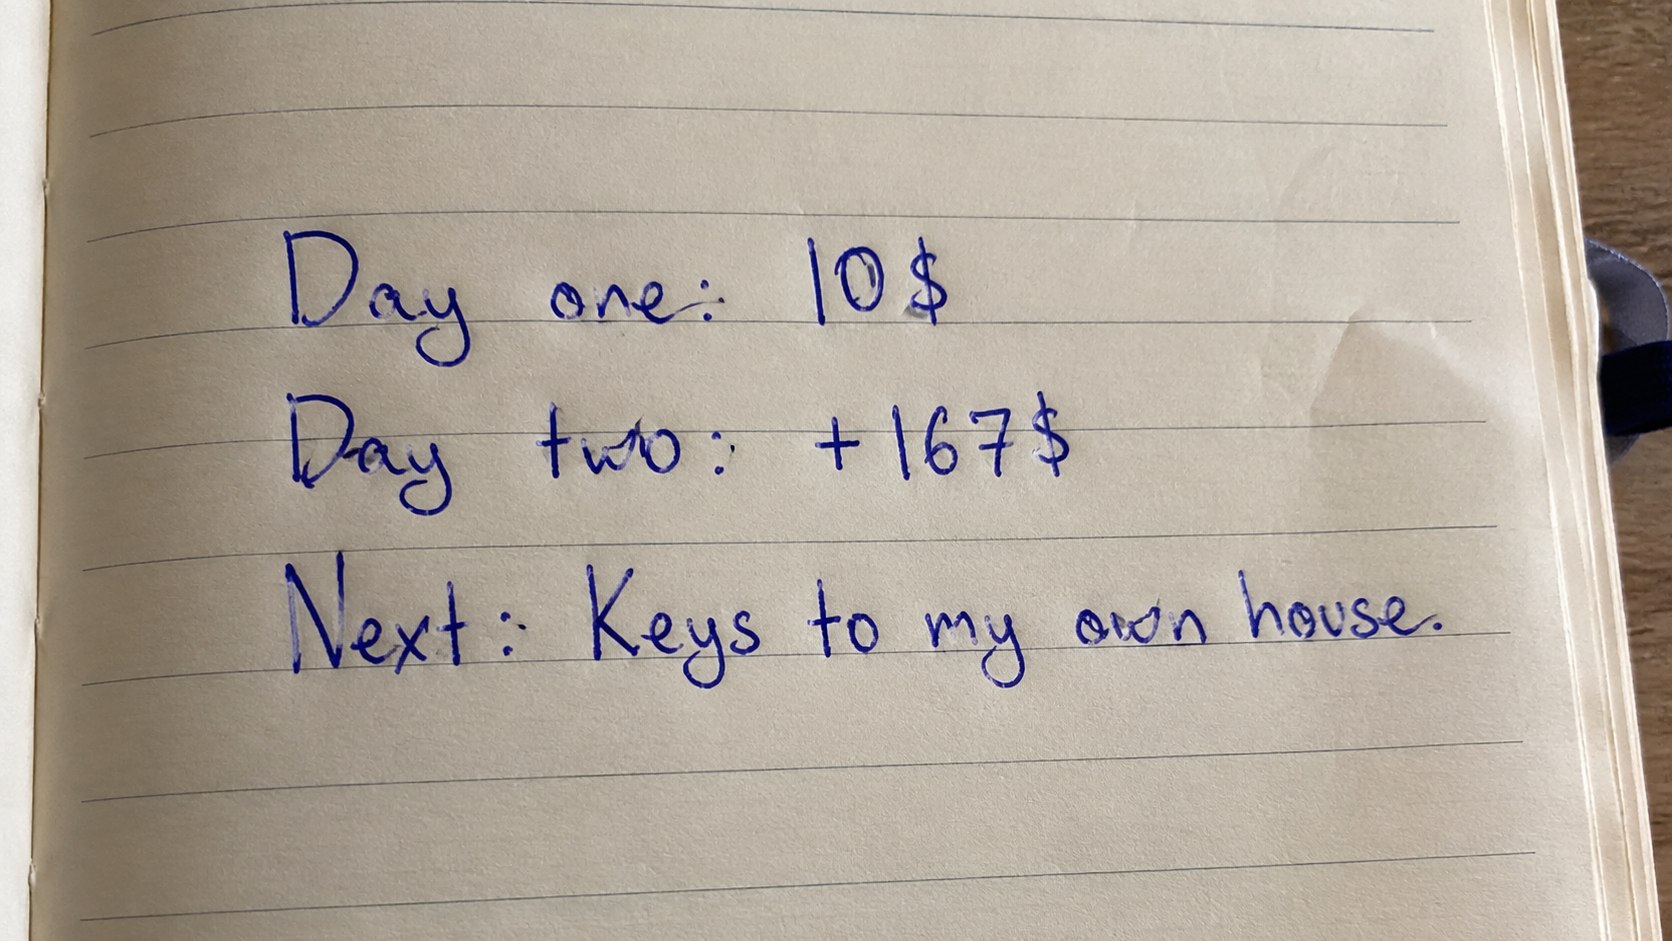 Day one: 10$
Day two: +167$
Next: Keys to my own house.